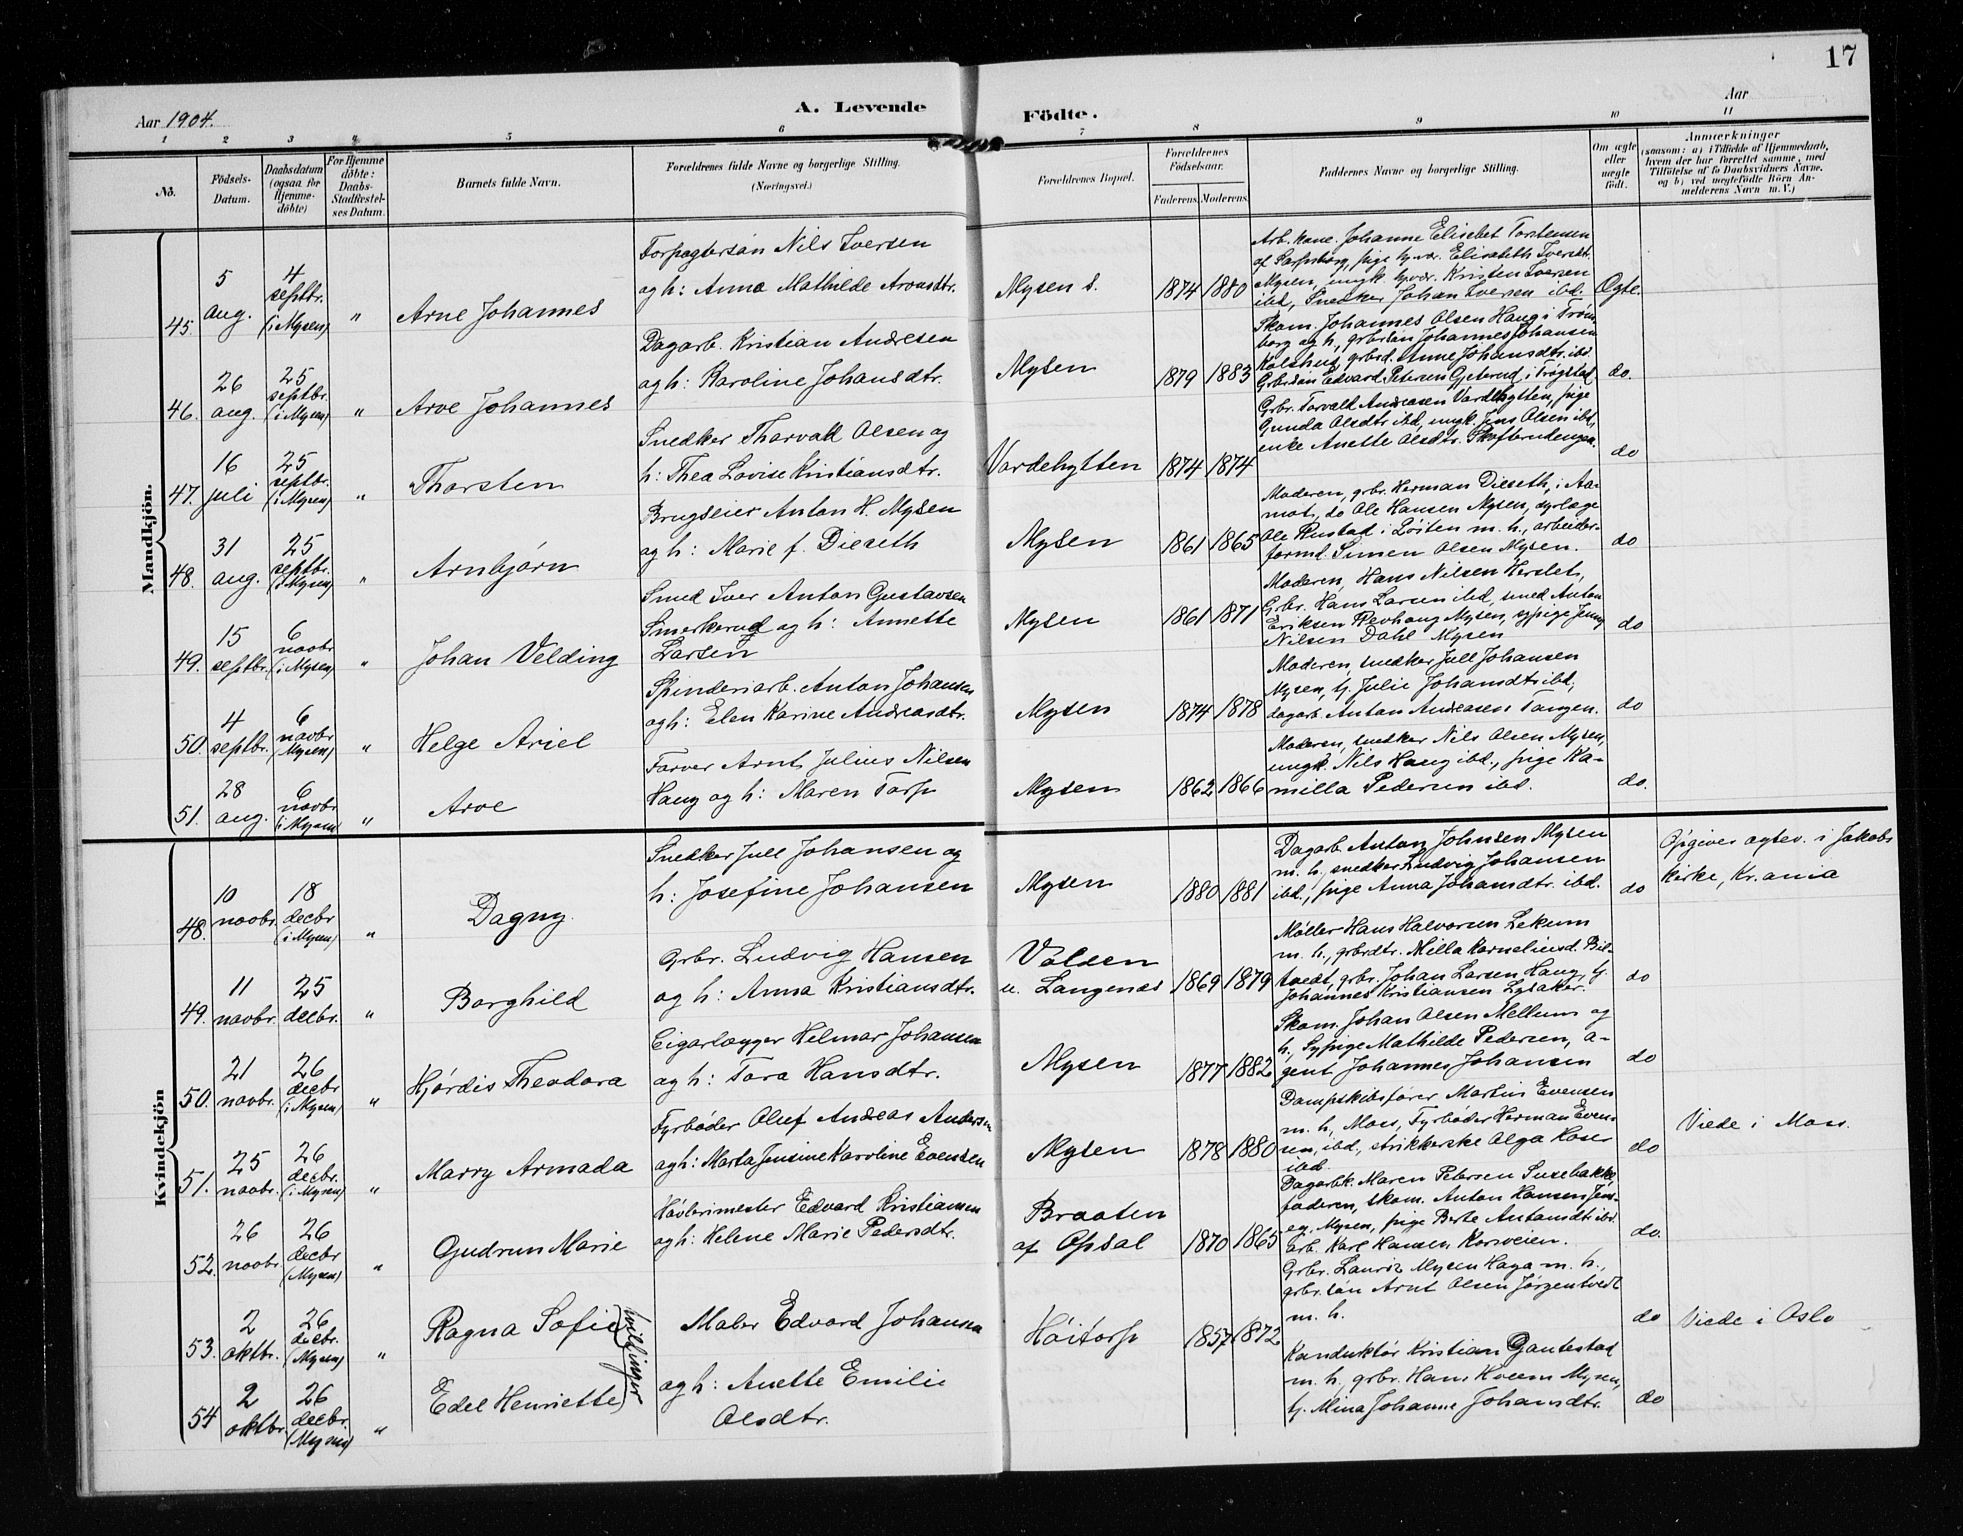 17
Aar 1904.
A. Levende
Födte.
Aar
1 2 3 4 5 6 7 8 9 10 11
No.
Födsels-Datum.
Daabsdatum (ogsaa for Hjemme-döbte)
For Hjemme döbte: Daabs-Stadfestel-ses Datum.
Barnets fulde Navn.
Forældrenes fulde Navne og borgerlige Stilling.
(Næringsvei.)
Forældrenes Bopæl.
Forældrenes Födselsaar.
Faderens. Moderens.
Faddernes Navne og borgerlige Stilling.
Om ægte eller uægte födt.
Anmærkninger
(saasom: a) i Tilfælde af Hjemmedaab,
hvem der har forrettet samme, med
Tilföielse af to Daabsvidners Navne,
og b) ved uægtefödte Börn An-
melderens Navn m. V.)
Mandkjön.
45. 5 aug. 4 septbr. (i Mysen) " Arne Johannes
Forpagtersøn Nils Iversen
og h: Anna Mathilde Arvesdtr.
Mysen s. 1874 1880
Arb. kone. Johanne Elisebet Torstensen
af Sarpsborg, pige hjvær. Elisabeth Iversdt.
Mysen, ungk. hjvær. Kristen Iversen
ibd, Snedker Johan Iversen ibd.
Ægte.
46. 26 aug. 25 septbr. (i Mysen) " Arve Johannes
Dagarb. Kristian Andresen
og h: Karoline Johansdtr.
Mysen 1879 1883
Skom. Johannes Olsen Haug i Trøm-
borg og h, grbrsøn Johannes Johansen
Kolshus, grbrd. Anne Johansdtr. ibd.
Grbrsøn Edvard Petersen Gjeterud i Trøgstad
do.
47. 16 juli 25 septbr. (i Mysen) " Thorsten
Snedker Thorvald Olsen og
h: Thea Lovise Kristiansdtr.
Vardehytten 1874 1874
Grbr. Torvald Andreasen Vardehytten, pige
Gunda Olsdtr ibd, ungk. Jens Olsen ibd,
enke Anette Olsdtr. Skofterudengen.
do
48. 31 aug. 25 septbr. (i Mysen) " Arnbjørn
Brugseier Anton H. Mysen
og h: Marie f. Dieseth
Mysen 1861 1865
Moderen, grbr. Herman Dieseth, i Aa-
mot, do Ole Hansen Mysen, dyrlæge
Ole Rustad i Løiten m. h., arbeider-
formd. Simen Olsen Mysen.
do
49. 15 septbr. 6 novbr (i Mysen) " Johan Velding
Smed Iver Anton Gustavsen
Smerkerud og h: Annette
Larsen
Mysen 1861 1871
Moderen, Hans Nilsen Herslet,
Grbr. Hans Larsen ibd, smed Anton
Eriksen Revhaug Mysen, sypige Jenny
Nilsen Dahl Mysen
do
50. 4 septbr. 6 novbr (Mysen) " Helge Ariel
Spinderiarb. Anton Johansen
og h: Elen Karine Andreasdtr.
Mysen 1874 1878
Moderen, snedker Jull Johansen
Mysen, tj. Julie Johansdtr ibd,
dagarb. Anton Andreasen Tangen.
do
51. 28 aug. 6 novbr (i Mysen " Arve
Farver Arnt Julius Nilsen
Haug og h: Maren Torp
Mysen 1862 1866
Moderen, snedker Nils Olsen Mysen,
ungk. Nils Haug ibd., pige Ka-
milla Pedersen ibd.
do.
Kvindekjön
48. 10 novbr. 18 decbr (i Mysen) " Dagny.
Snedker Jull Johansen og
h: Josefine Johansen
Mysen 1880 1881
Dagarb. Anton Johnsen Mysen
m. h., snedker Ludvig Johansen
ibd., pige Anna Johansdtr. ibd.
do
Opgiver agtev. i Jakobs
kirke, Kr.ania
49. 11 novbr. 25 decbr. " Borghild
Grbr. Ludvig Hansen
og h: Anna Kristiansdtr.
Volden
u. Langenæs 1869 1879
Møller Hans Halvorsen Lekum
m. h., grbrdtr. Milla Korneliusd. Bil-
tvedt, grbr. Johan Larsen Haug, tj.
Johannes Kristiansen Lysaker.
do
50. 21 novbr. 26 decbr (i Mysen) " Hjørdis Theodora
Cigarlægger Helmar Johansen
og h: Tora Hansdtr.
Mysen 1877 1882
Skom. Johan Olsen Mellum og
h., Sypige Mathilde Pedersen, a-
gent Johannes Johansen
do
51. 25 novbr. 26 decbr. (i Mysen) " Marry Armada
Fyrbøder Oluf Andreas Andersen
og h: Marta Jensine Karoline Evensen
Mysen 1878 1880
Dampskibsfører Martin Evensen
m. h, Moss, Fyrbøder Herman Even-
sen, ibd., strikkerske Olga Hoser
ibd.
do
Viede i Moss.
52. 26 novbr. 26 decbr (Mysen) " Gudrun Marie
Høvlerimester Edvard Kristiansen
og h: Helene Marie Pedersdtr.
Braaten
af Opsal 1870 1865
Dagarbk. Maren Petersen Susebakke,
faderen, skom. Anton Hansen Jens-
eg, Mysen, pige Berte Antonsdtr ibd.
Erb. Karl Hansen Korsveien.
do.
53. 2 oktbr. 26 decbr. (Mysen) " Ragna Sofie
Maler Edvard Johansen
Høitorp 1857 1872
Grbr. Lauriz Mysen Haga m. h.,
grbr. søn Arnt Olsen Jørgentvedt
m. h.
do
Viede i Oslo
tvillinger
54 2 oktbr. 26 decbr. (Mysen) " Edel Henriette
og h: Anette Emilie
Olsdtr.
Konduktør Kristian Gautestad
m. h, grbr. Hans Kveen Mysen,
tj. Mina Johanne Johansdtr.
do